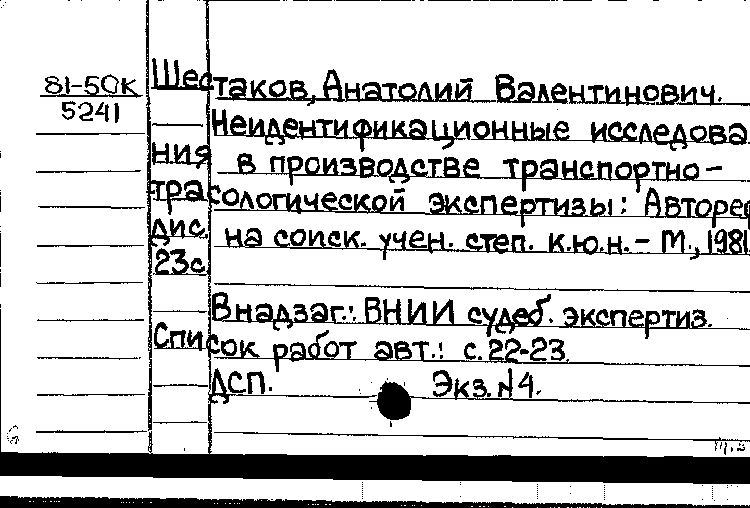 81-50К
5241
Шестаков, Анатолий Валентинович.
Неидентификационные исследова
ния в производстве транспортно-
трасологической экспертизы: Авторе
дис. на соиск. учен. степ. к.ю.н. - М., 1981
23с
В надзаг.: ВНИИ судеб. экспертиз.
Список работ авт.: с. 22-23.
ДСП. Экз. №4.